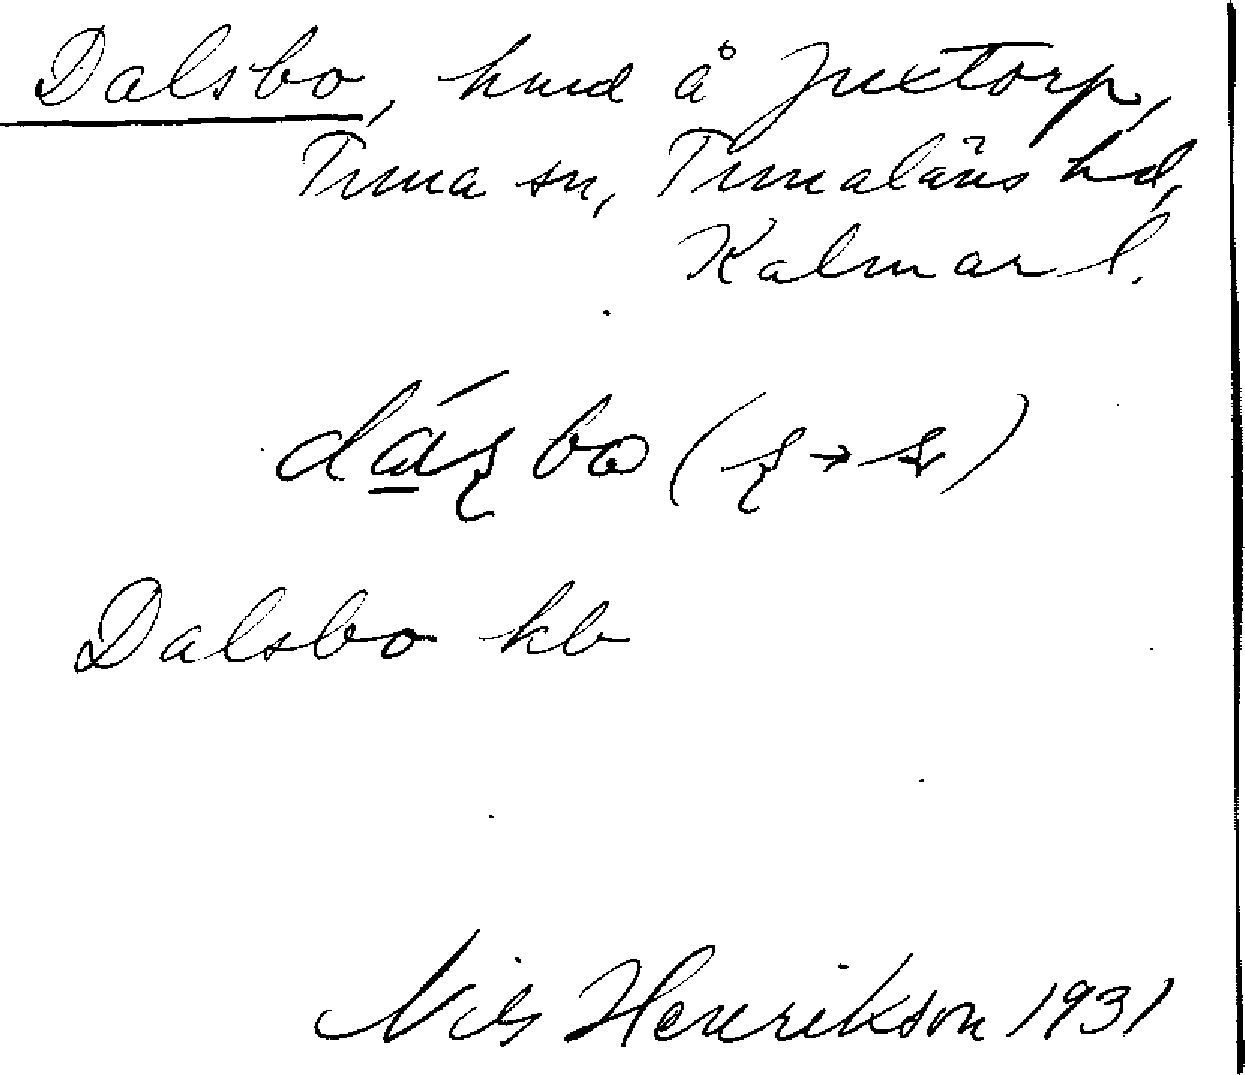 Dalsbo, hmd å Juxtorp,
Tuna sn, Tunaläns hd,
Kalmar l.
dáʂbo (ʂ → s)
Dalsbo kb
Nils Henrikson 1931